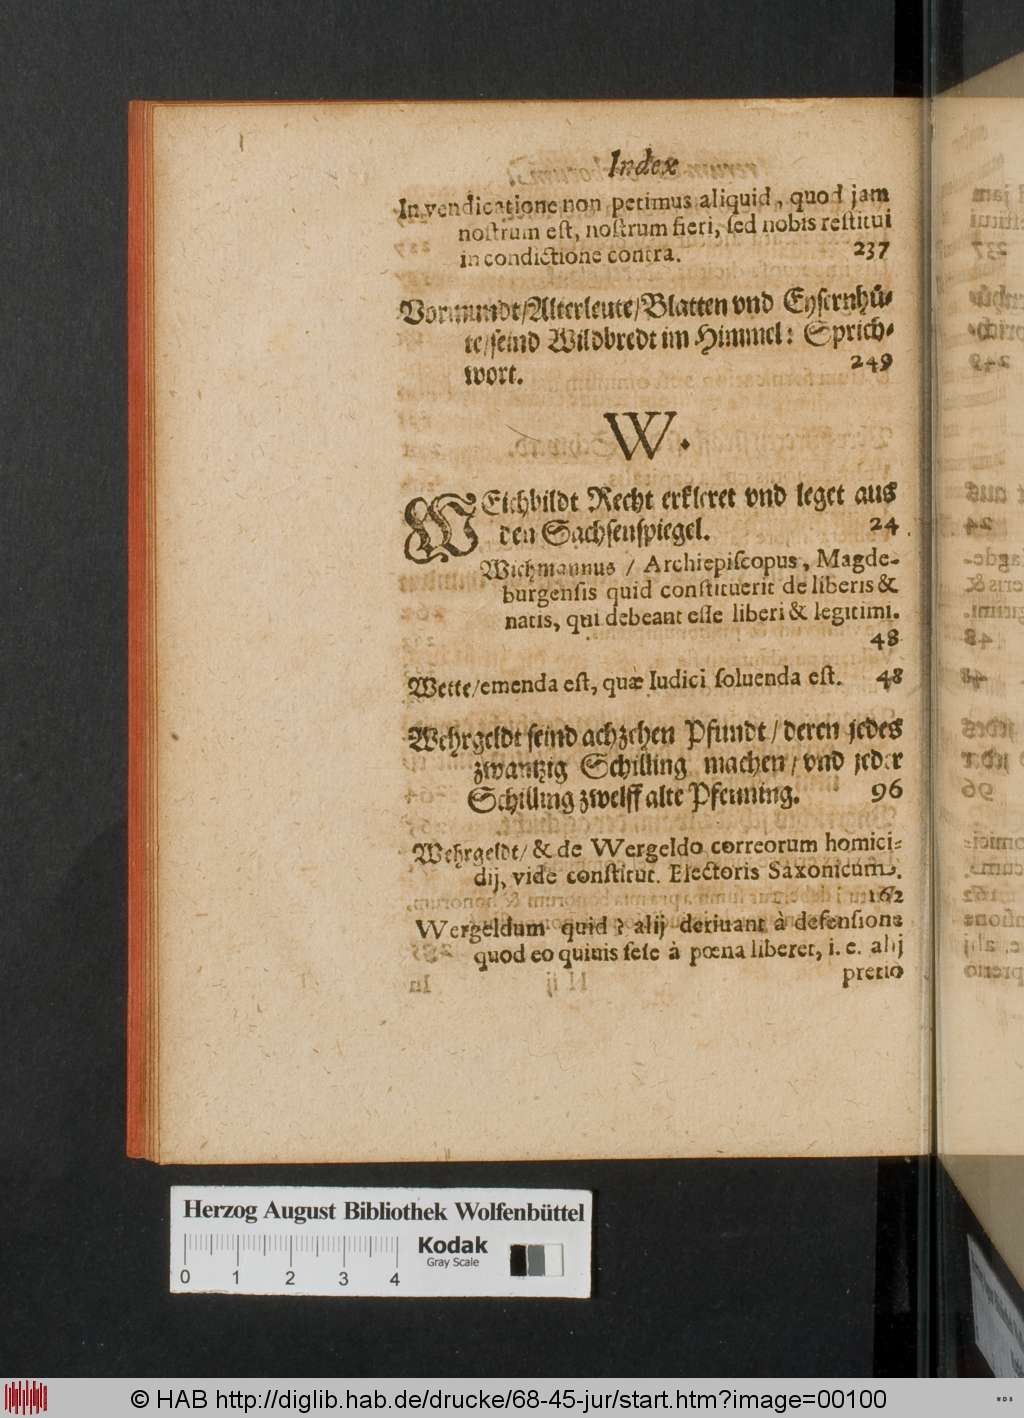 Index
In vendicatione non petimus aliquid, quod jam
nostrum est, nostrum fieri, sed nobis restitui
in condictione contra. 237
Vormundt/Alterleute/Blatten vnd Eysernhü-
te/seind Wildbredt im Himmel: Sprich-
wort. 249
W.
WEichbildt Recht erkleret vnd leget aus
den Sachsenspiegel. 24
Wichmannus / Archiepiscopus, Magde-
burgensis quid constituerit de liberis &
natis, qui debeant esse liberi & legitimi.
48
Wette/emenda est, quæ Iudici soluenda est. 48
Wehrgeldt seind achzehen Pfundt/deren jedes
zwantzig Schilling machen/vnd jeder
Schilling zwelff alte Pfenning. 96
Wehrgeldt/ & de Wergeldo correorum homici-
dij, vide constitut. Electoris Saxonicum.
162
Wergeldum quid? alij deriuant à defensione
quod eo quinis sese à pœna liberet, i. e. alij
pretio
Herzog August Bibliothek Wolfenbüttel
Kodak
Gray Scale
0 1 2 3 4
© HAB http://diglib.hab.de/drucke/68-45-jur/start.htm?image=00100